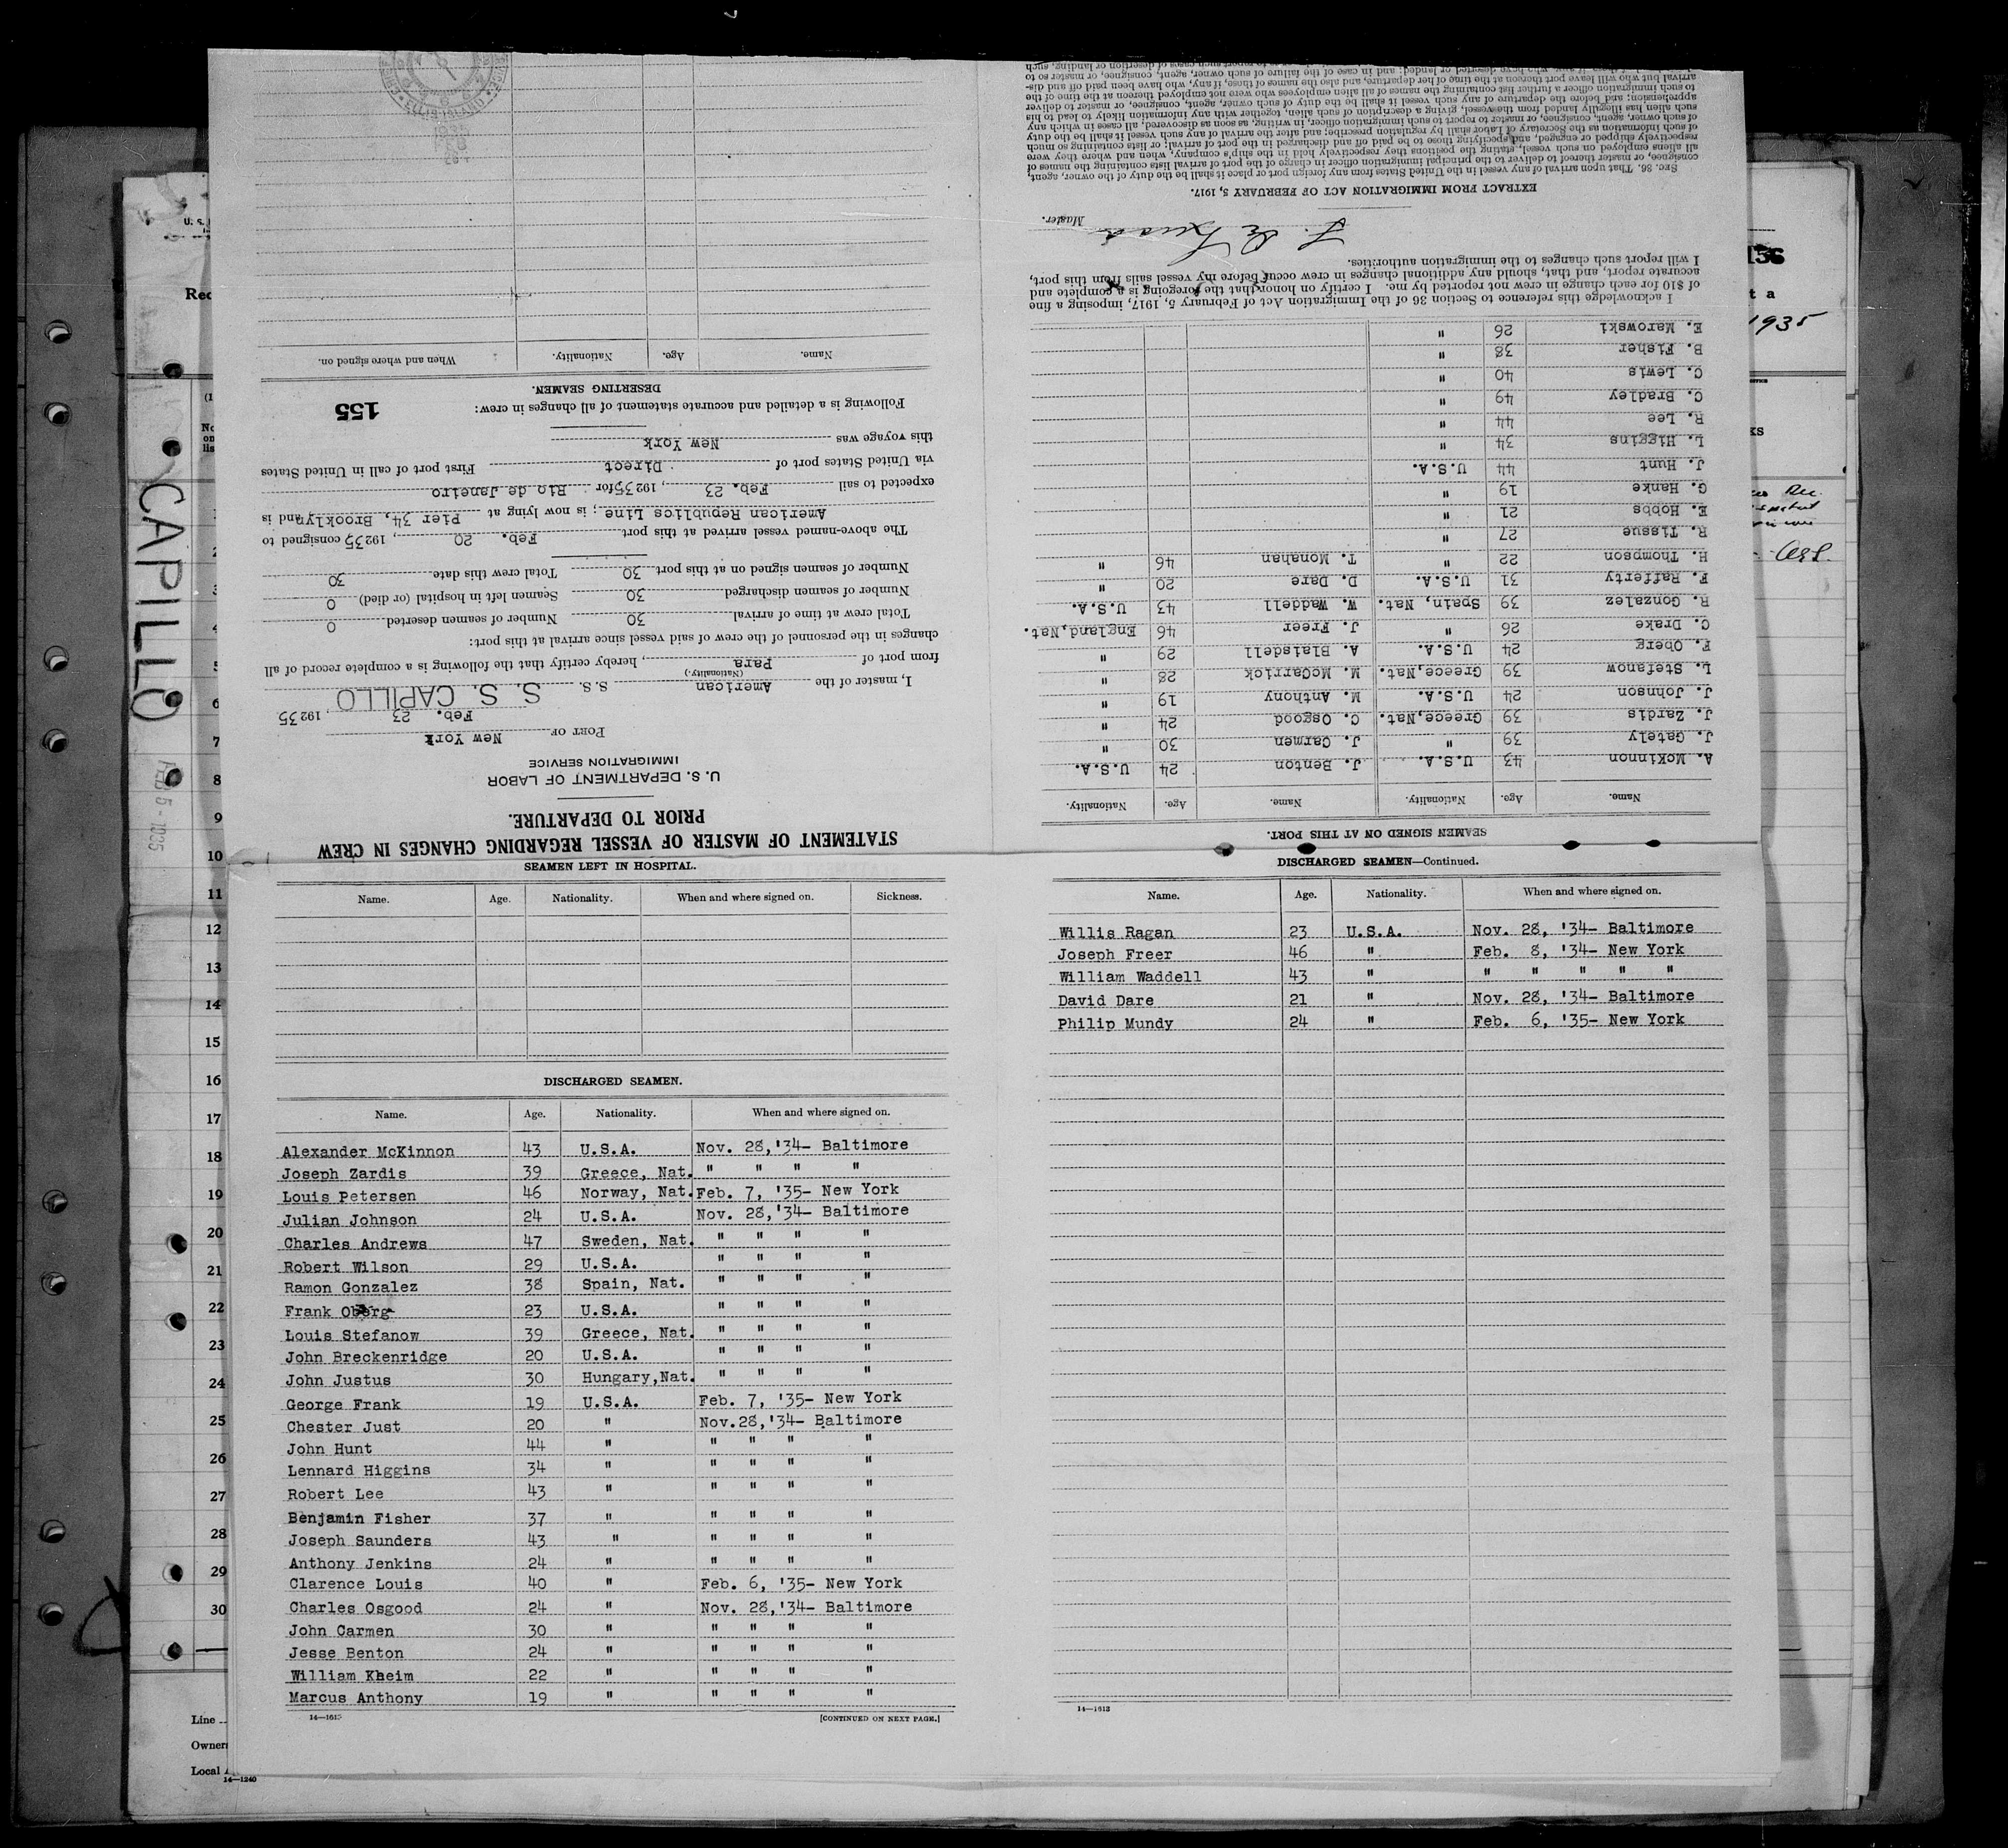 STATEMENT OF MASTER OF VESSEL REGARDING CHANGES IN CREW
PRIOR TO DEPARTURE.
U. S. DEPARTMENT OF LABOR
IMMIGRATION SERVICE
PORT OF New York
Feb. 23, 19235
I, master of the American S.S. S. S. CAPILLO
(Nationality.)
from port of Para, hereby certify that the following is a complete record of all
changes in the personnel of the crew of said vessel since arrival at this port:
Total crew at time of arrival 30 Number of seamen deserted 0
Number of seamen discharged 30 Seamen left in hospital (or died) 0
Number of seamen signed on at this port 30 Total crew this date 30
The above-named vessel arrived at this port Feb. 20, 19235 consigned to
American Republics Line; is now lying at Pier 34, Brooklyn and is
expected to sail Feb. 23, 19235 for Rio de Janeiro
via United States port of Direct First port of call in United States
this voyage was New York
Following is a detailed and accurate statement of all changes in crew:
155
DESERTING SEAMEN.
Name. Age. Nationality. When and where signed on.
SEAMEN LEFT IN HOSPITAL.
Name. Age. Nationality. When and where signed on. Sickness.
DISCHARGED SEAMEN.
Name. Age. Nationality. When and where signed on.
Alexander McKinnon 43 U.S.A. Nov. 28,'34- Baltimore
Joseph Zardis 39 Greece, Nat. " " " "
Louis Petersen 46 Norway, Nat. Feb. 7, '35- New York
Julian Johnson 24 U.S.A. Nov. 28,'34- Baltimore
Charles Andrews 47 Sweden, Nat. " " " "
Robert Wilson 29 U.S.A. " " " "
Ramon Gonzalez 38 Spain, Nat. " " " "
Frank Oberg 23 U.S.A. " " " "
Louis Stefanow 39 Greece, Nat. " " " "
John Breckenridge 20 U.S.A. " " " "
John Justus 30 Hungary,Nat. " " " "
George Frank 19 U.S.A. Feb. 7, '35- New York
Chester Just 20 " Nov.28,'34- Baltimore
John Hunt 44 " " " " "
Lennard Higgins 34 " " " " "
Robert Lee 43 " " " " "
Benjamin Fisher 37 " " " " "
Joseph Saunders 43 " " " " "
Anthony Jenkins 24 " " " " "
Clarence Louis 40 " Feb. 6, '35- New York
Charles Osgood 24 " Nov. 28,'34- Baltimore
John Carmen 30 " " " " "
Jesse Benton 24 " " " " "
William Kheim 22 " " " " "
Marcus Anthony 19 " " " " "
[CONTINUED ON NEXT PAGE.]
DISCHARGED SEAMEN—Continued.
Name. Age. Nationality. When and where signed on.
Willis Ragan 23 U.S.A. Nov. 28, '34- Baltimore
Joseph Freer 46 " Feb. 8, '34- New York
William Waddell 43 " " " " " "
David Dare 21 " Nov. 28, '34- Baltimore
Philip Mundy 24 " Feb. 6, '35- New York
14—1613
SEAMEN SIGNED ON AT THIS PORT.
Name. Age. Nationality. Name. Age. Nationality.
A. McKinnon 43 U.S.A. J. Benton 24 U.S.A.
J. Gately 39 " J. Carmen 30 "
J. Zardis 39 Greece,Nat. C. Osgood 24 "
J. Johnson 24 U.S.A. M. Anthony 19 "
L. Stefanow 39 Greece,Nat. M. McGarrick 28 "
F. Oberg 24 U.S.A. A. Blaisdell 29 "
C. Drake 26 " J. Freer 46 England,Nat.
R. Gonzalez 39 Spain, Nat. W. Waddell 43 U.S.A.
F. Rafferty 31 U.S.A. D. Dare 20 "
H. Thompson 22 " T. Monahan 46 "
R. Tissue 27 "
E. Hobbs 21 "
G. Hanke 19 "
J. Hunt 44 U.S.A.
L. Higgins 34 "
R. Lee 44 "
C. Bradley 49 "
C. Lewis 40 "
B. Fisher 38 "
E. Marowski 26 "
I acknowledge this reference to Section 36 of the Immigration Act of February 5, 1917, imposing a fine
of $10 for each change in crew not reported by me. I certify on honor that the foregoing is a complete and
accurate report, and that, should any additional changes in crew occur before my vessel sails from this port,
I will report such changes to the immigration authorities.
Master.
EXTRACT FROM IMMIGRATION ACT OF FEBRUARY 5, 1917.
SEC. 36. That upon arrival of any vessel in the United States from any foreign port or place it shall be the duty of the owner, agent,
consignee, or master thereof to deliver to the principal immigration officer in charge of the port of arrival lists containing the names of
all aliens employed on such vessel, stating the positions they respectively hold in the ship's company, when and where they were
respectively shipped or engaged, and specifying those to be paid off and discharged in the port of arrival; or lists containing so much
of such information as the Secretary of Labor shall by regulation prescribe; and after the arrival of any such vessel it shall be the duty
of such owner, agent, consignee, or master to report to such immigration officer, in writing, as soon as discovered, all cases in which any
such alien has illegally landed from the vessel, giving a description of such alien, together with any information likely to lead to his
apprehension; and before the departure of any such vessel it shall be the duty of such owner, agent, consignee, or master to deliver
to such immigration officer a further list containing the names of all alien employees who were not employed thereon at the time of the
arrival but who will leave port thereon at the time of her departure, and also the names of those, if any, who have been paid off and dis-
CAPILLO
FEB 5 - 1935
1935
1
2
3
4
5
6
7
8
9
10
11
12
13
14
15
16
17
18
19
20
21
22
23
24
25
26
27
28
29
30
Line
Local
14—1240